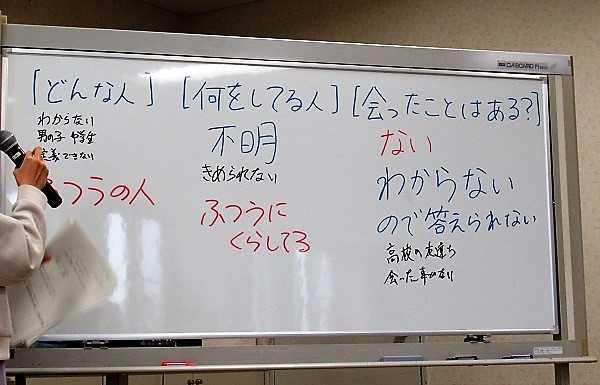 [どんな人]
わからない
男の子 中学生
定義できない
ふつうの人
[何をしてる人]
不明
きめられない
ふつうに
くらしてる
[会ったことはある?]
ない
わからない
ので答えられない
高校の友達ち
会った事がない